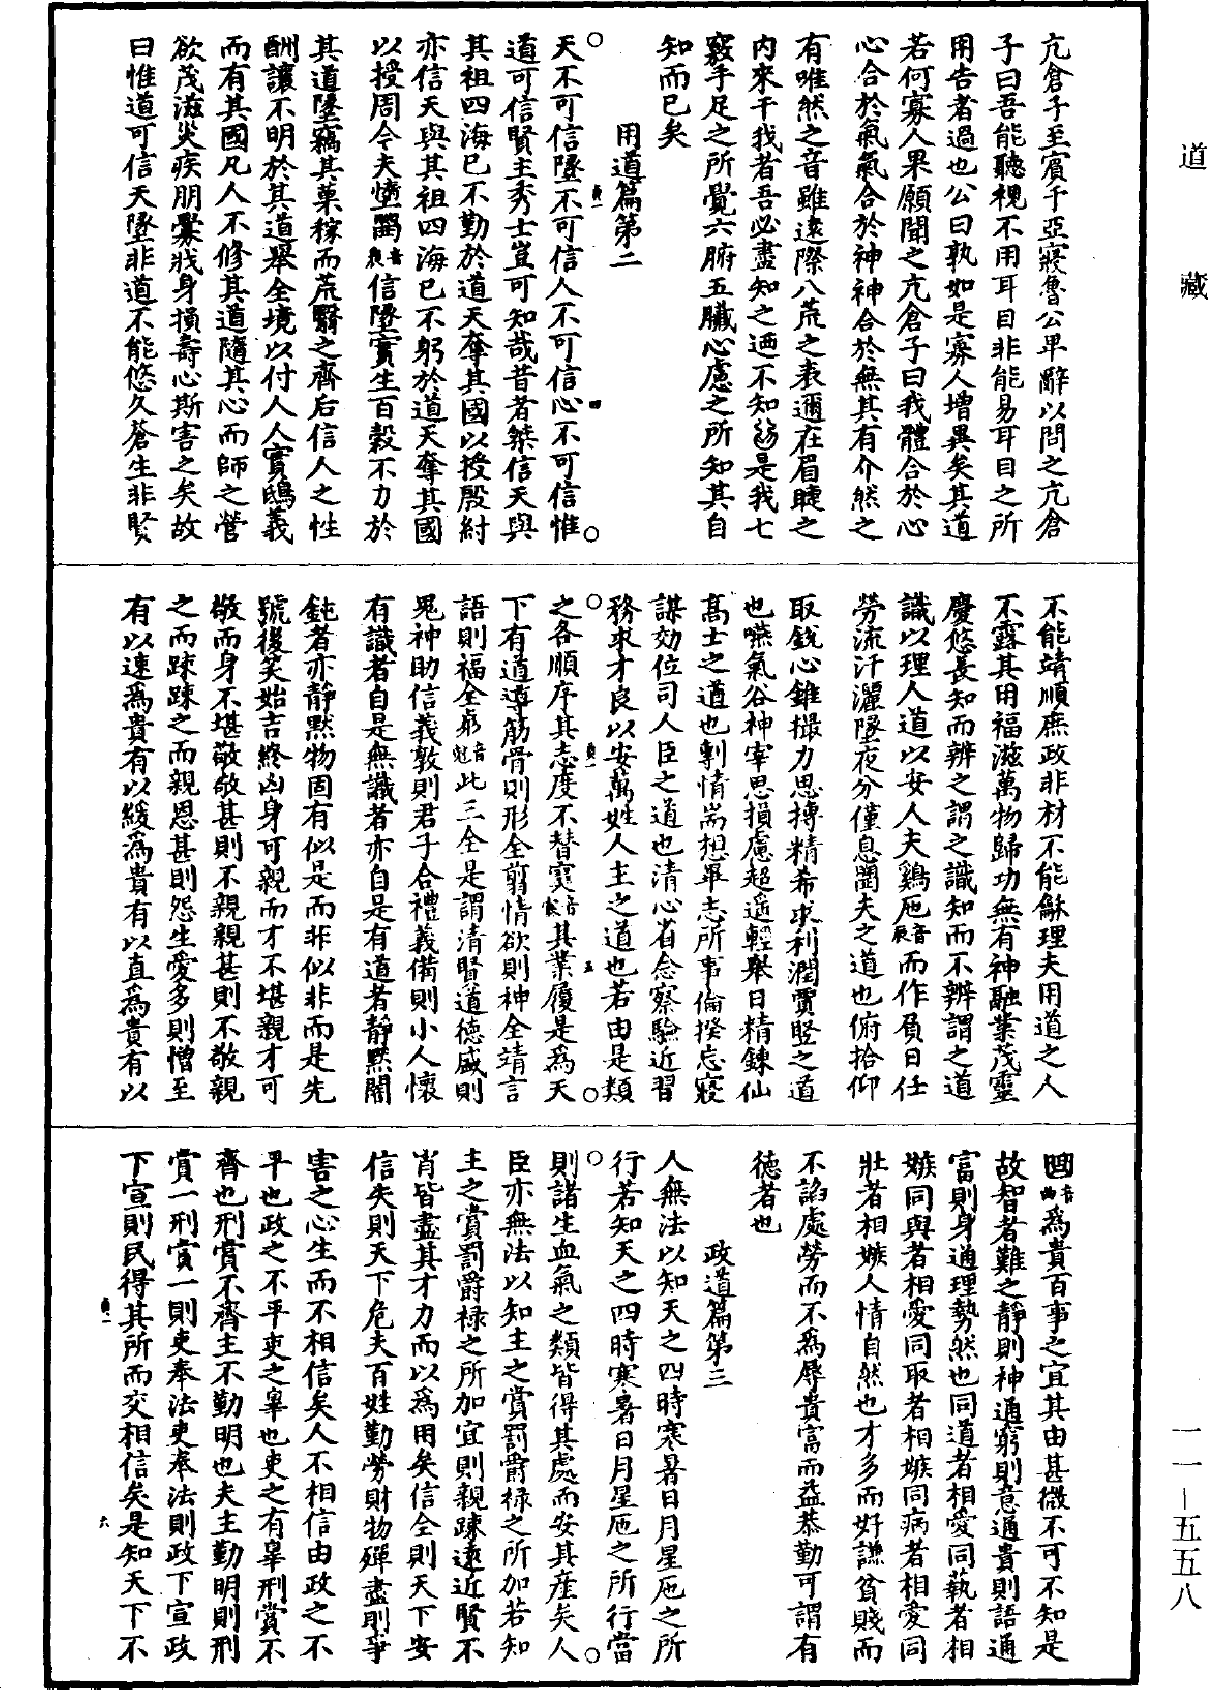 道藏
亢倉子至賔于亞寢魯公卑辭以問之亢倉
子曰吾能聽視不用耳目非能易耳目之所
用告者過也公曰孰如是寡人增異矣其道
若何寡人果願聞之亢倉子曰我體合於心
心合於氣氣合於神神合於無其有介然之
有唯然之音雖遠際八荒之表邇在眉睫之
內來干我者吾必盡知之迺不知爲是我七
竅手足之所覺六腑五臟心慮之所知其自
知而已矣
用道篇第二
天不可信墬不可信人不可信心不可信惟
道可信賢主秀士豈可知哉昔者桀信天與
其祖四海已不勤於道天奪其國以授殷紂
亦信天與其祖四海已不躬於道天奪其國
以授周今夫墯信墬實生百穀不力於
其道墬竊其菓稼而荒翳之齊后信人之性
酬讓不明於其道舉全境以付人人實鴟義
而有其國凡人不修其道隨其心而師之營
欲茂滋災疾朋釁戕身損壽心斯害之矣故
曰惟道可信天墬非道不能悠久蒼生非賢
不能靖順庶政非材不能龢理夫用道之人
不露其用福滋萬物歸功無有神融業茂靈
慶悠長知而辨之謂之識知而不辨謂之道
識以理人道以安人夫鷄𠨷音辰而作負日任
勞流汗灑墬夜分僅息農夫之道也俯拾仰
取銳心錐撮力思搏精希求利潤賈竪之道
也嚥氣谷神宰思損慮超遥輕舉日精鍊仙
高士之道也剸情耑想畢志所事倫揆忘寢
謀効位司人臣之道也清心省念察驗近習
務求才良以安萬姓人主之道也若由是類
之各順序其志度不替塞音其業履是爲天
下有道導筋骨則形全翦情欲則神全靖言
語則福全音此三全是謂清賢道德盛則
鬼神助信義敦則君子合禮義備則小人懷
有識者自是無識者亦自是有道者靜黙闇
鈍者亦靜黙物固有似是而非似非而是先
號後笑始吉終凶身可親而才不堪親才可
敬而身不堪敬敬甚則不親親甚則不敬親
之而踈踈之而親恩甚則怨生愛多則憎至
有以速爲貴有以緩爲貴有以直爲貴有以
音曲爲貴百事之宜其由甚微不可不知是
故智者難之靜則神通窮則意通貴則語通
富則身通理勢然也同道者相愛同藝者相
嫉同與者相愛同取者相嫉同病者相愛同
壯者相嫉人情自然也才多而好謙貧賤而
不諂處勞而不爲辱貴富而益恭勤可謂有
德者也
政道篇第三
人無法以知天之四時寒暑日月星𠨷之所
行若知天之四時寒暑日月星𠨷之所行當
則諸生血氣之類皆得其處而安其産矣人
臣亦無法以知主之賞罰爵禄之所加若知
主之賞罰爵禄之所加宜則親踈遠近賢不
肖皆盡其才力而以爲用矣信全則天下安
信失則天下危夫百姓勤勞財物殫盡則爭
害之心生而不相信矣人不相信由政之不
平也政之不平吏之辠也吏之有辠刑賞不
齊也刑賞不齊主不勤明也夫主勤明則刑
賞一刑賞一則吏奉法吏奉法則政下宣政
下宣則民得其所而交相信矣是知天下不
一一—五五八